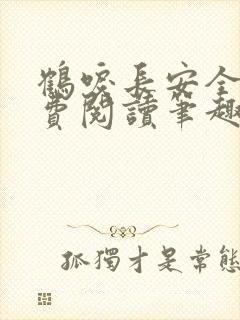 鶴唳長安全
費閱讀筆趣
孤獨才是常態